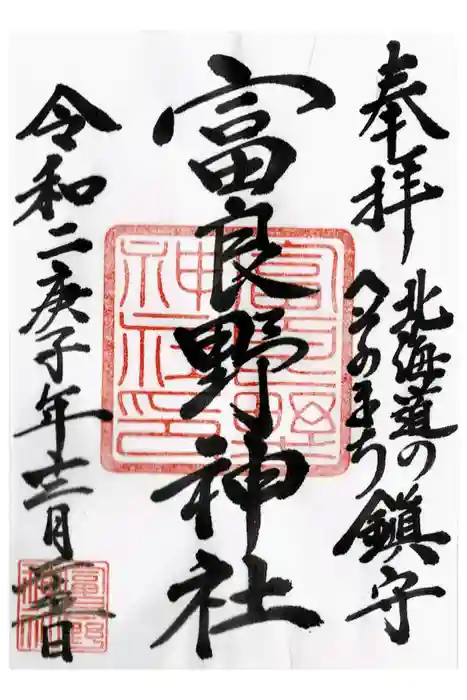 奉拝
北海道の
へそのまち
鎮守
富良野神社
富良野神社印
令和二庚子年十二月 日